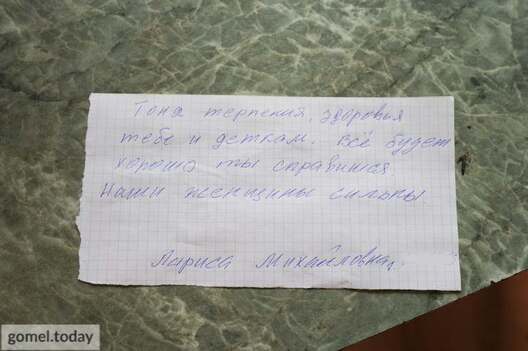 Тоня терпения, здоровья
тебе и деткам. Всё будет
хорошо ты справишся.
Наши женщины сильны.
Лариса Михайловна.
gomel.today